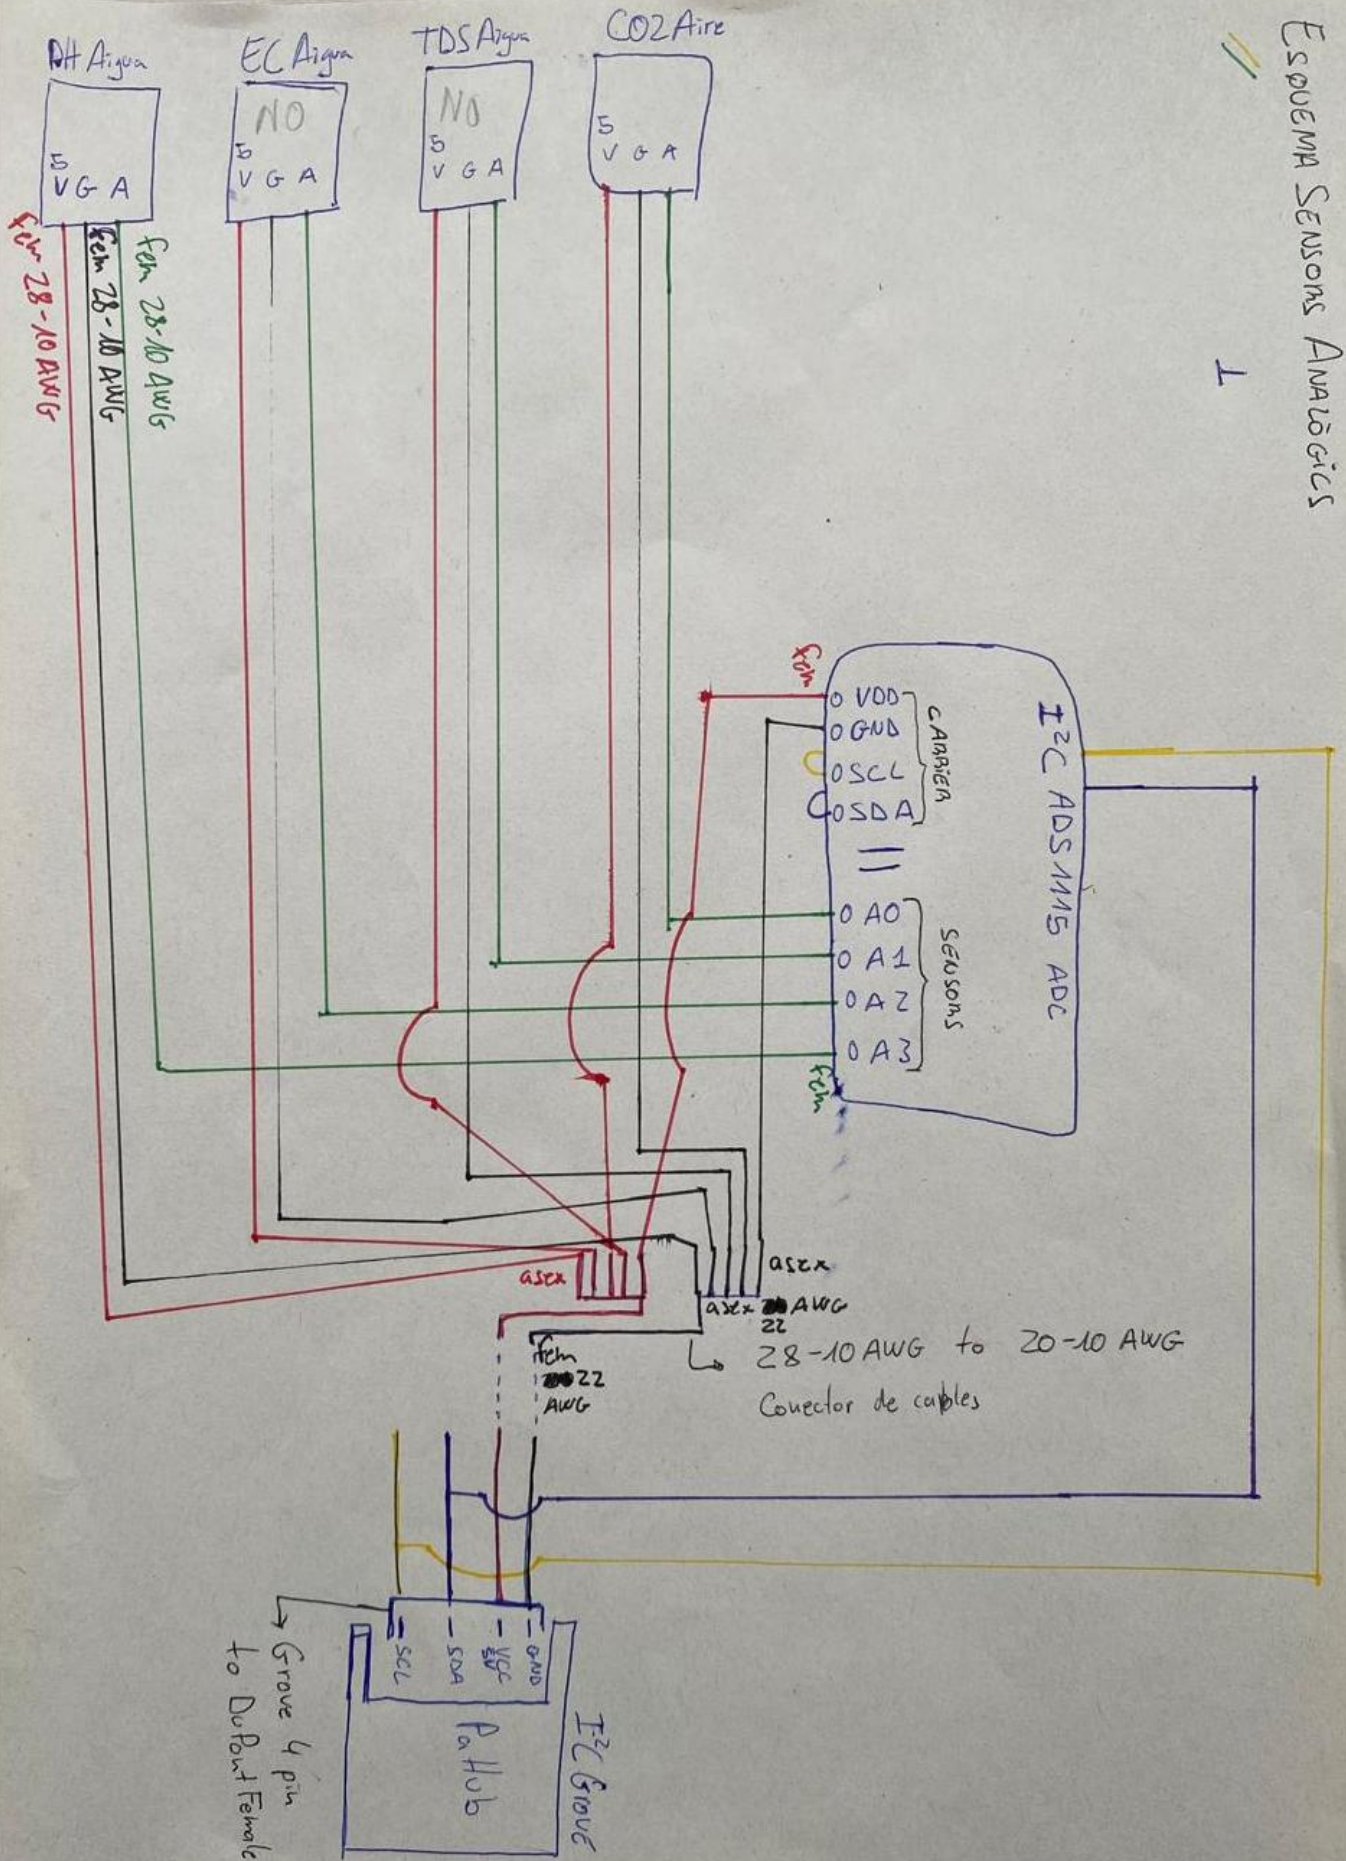 ESQUEMA SENSORS ANALÒGICS
1
PH Aigua
5
V G A
EC Aigua
NO
5
V G A
TDS Aigua
NO
5
V G A
CO2 Aire
5
V G A
fem 28-10 AWG
fem 28-10 AWG
fem 28-10 AWG
I²C ADS1115 ADC
fem
VDD
GND
SCL
SDA
CARRIER
A0
A1
A2
A3
SENSORS
fem
asex
asex
asex AWG
22
28-10 AWG to 20-10 AWG
Conector de cables
fem
22
AWG
SCL
SDA
VCC
5V
GND
PaHub
I²C GROVE
Grove 4 pin
to DuPont Female